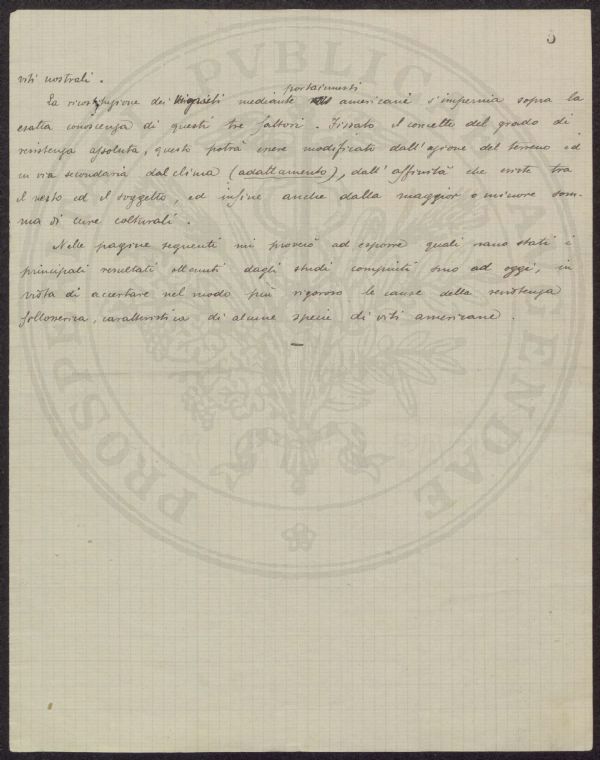 5
viti nostrali.
La ricostituzione dei vigneti mediante portainnesti americani s'impernia sopra la
esatta conoscenza di questi tre fattori. Fissato il concetto del grado di
resistenza assoluta, questo potrà essere modificato dall'azione del terreno ed
in via secondaria dal clima (adattamento), dall'affinità che esiste tra
il nesto ed il soggetto, ed infine anche dalla maggior o minore som-
ma di cure colturali.
Nelle pagine seguenti mi proverò ad esporre quali siano stati i
principali resultati ottenuti dagli studi compiuti sino ad oggi, in
vista di accertare nel modo più rigoroso le cause della resistenza
fillosserica, caratteristica di alcune specie di viti americane.
PVBLICAE
PROSPERITATI
AVGENDAE